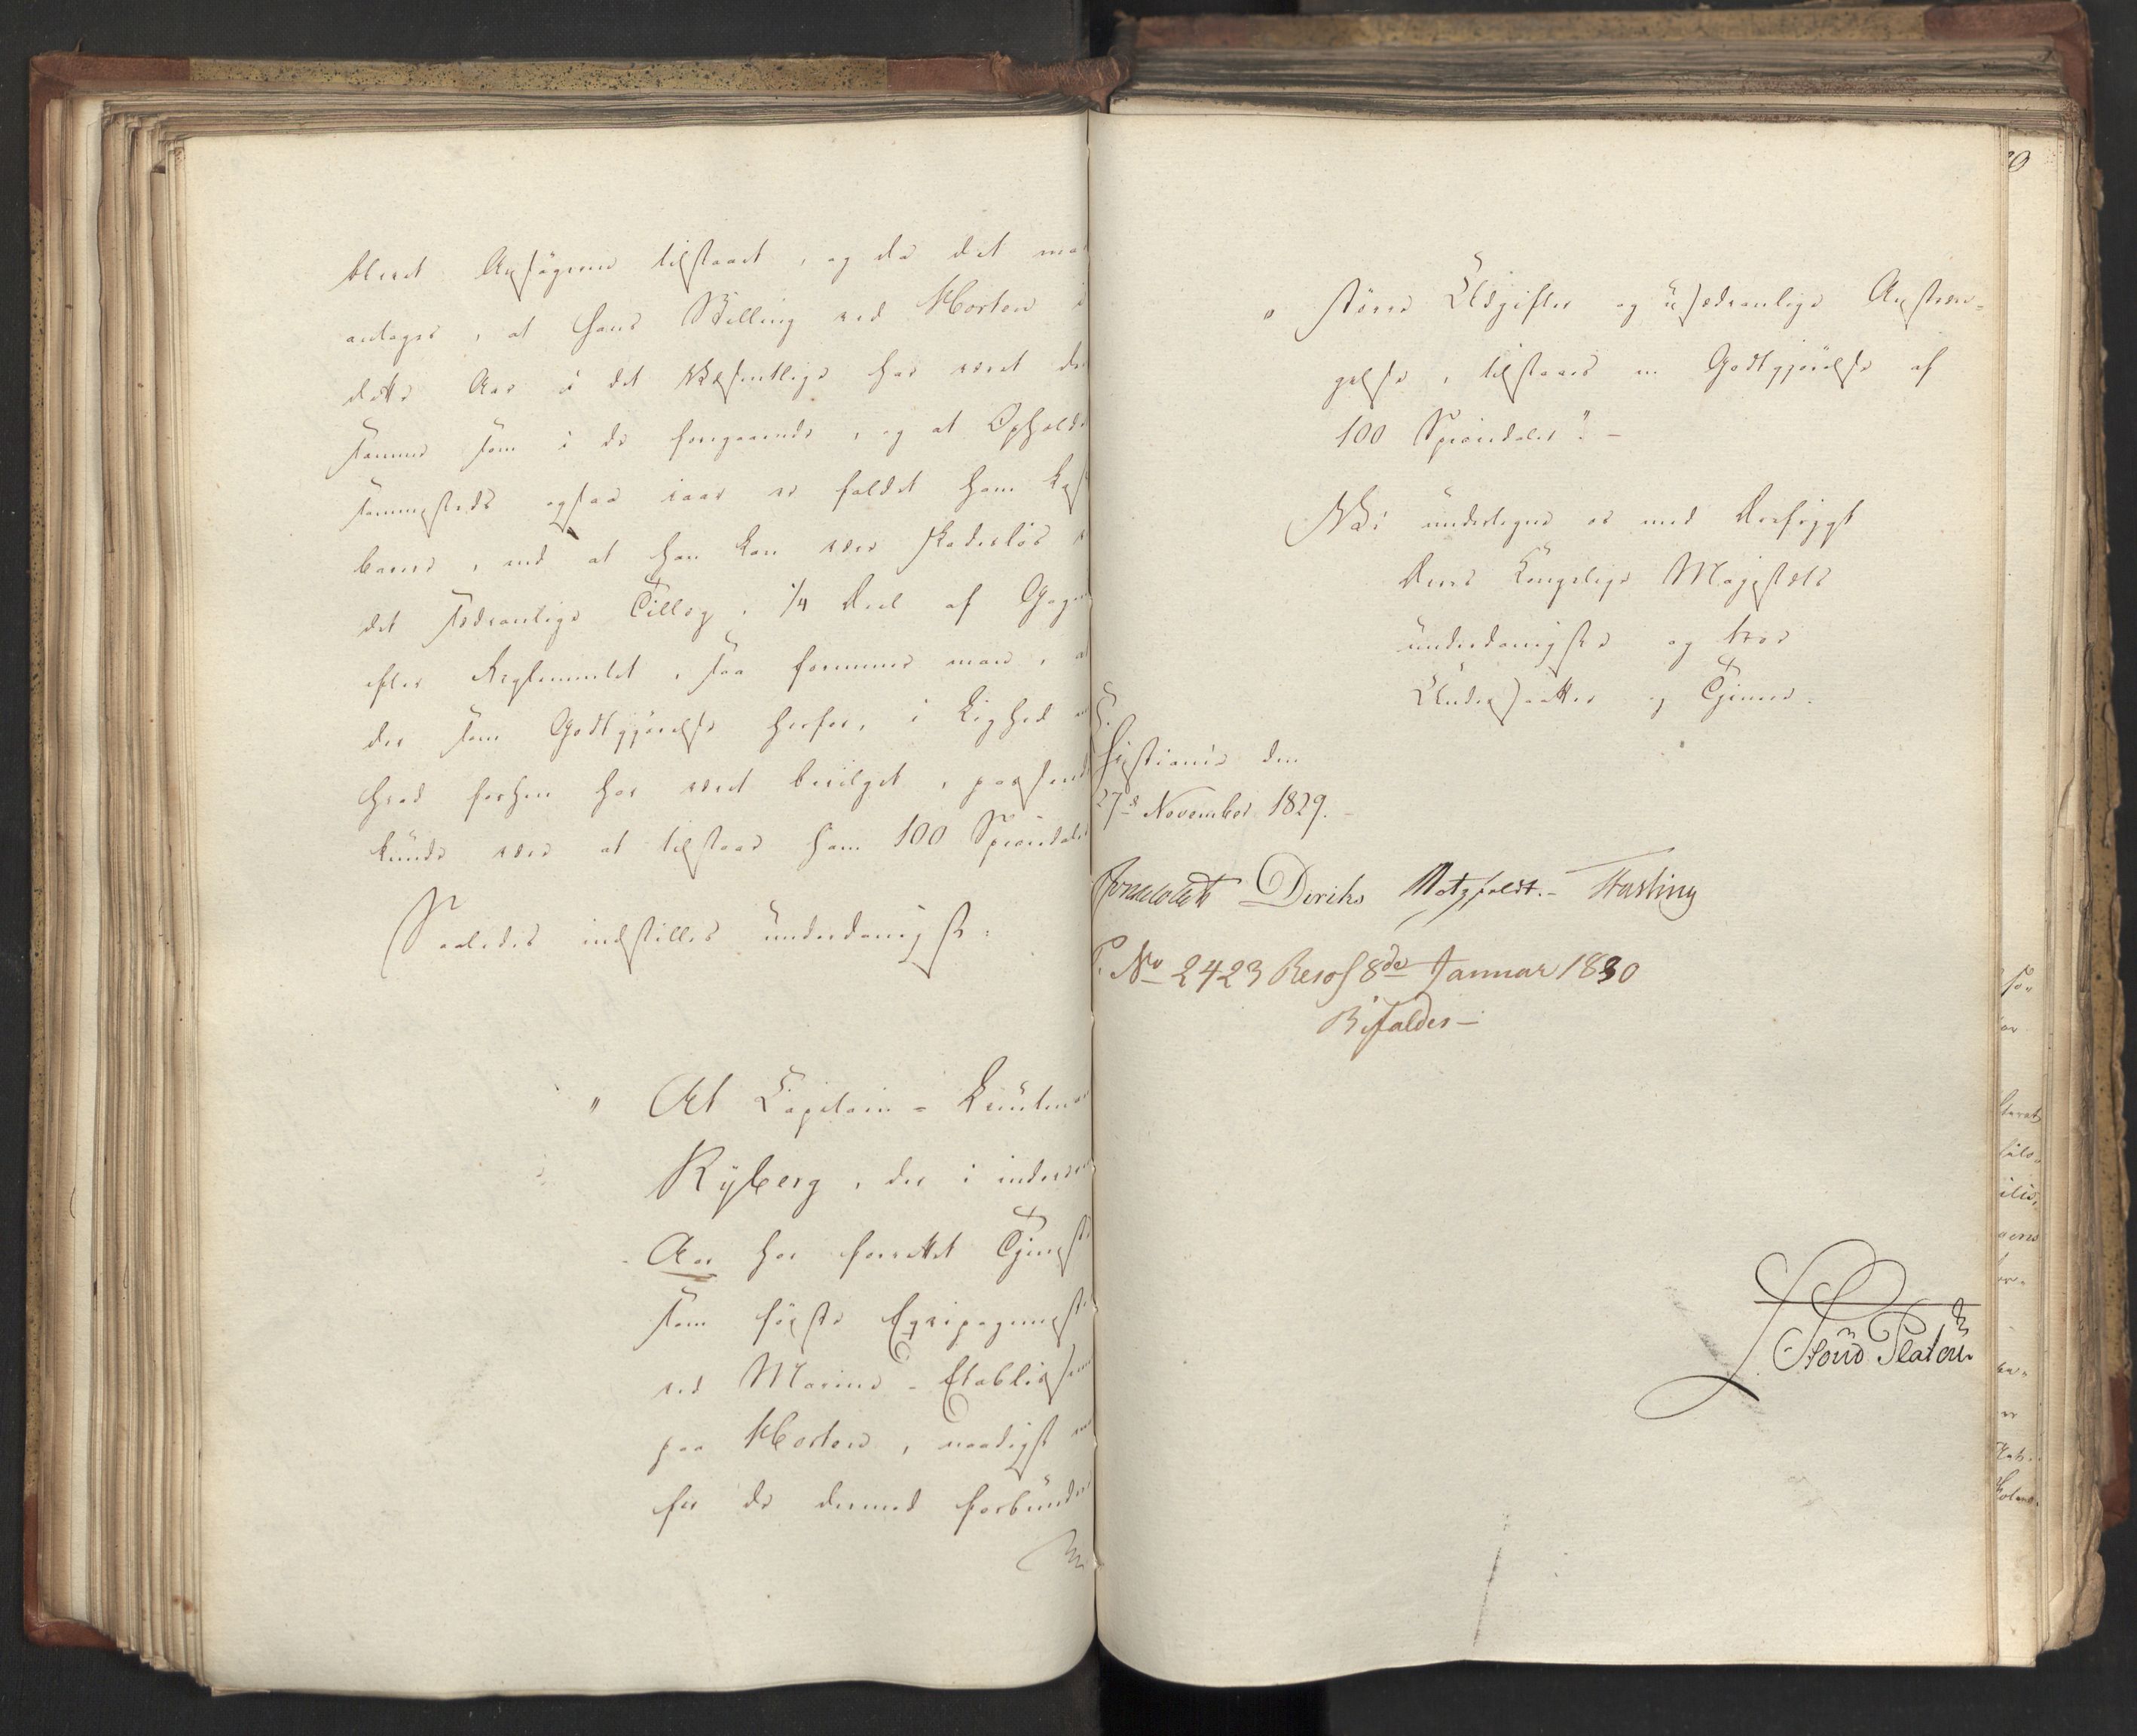 blevet Ansøgeren tilstaaet, og da det maa
antages, at hans Stilling ved Horten i
dette Aar i det Væsentlige har været den
samme som i de foregaaende, og at Opholdet
sammesteds ogsaa iaar er faldet ham
barere, end at han kan være skadesløs
det sædvanlige Tillæg, 1/4 Deel af Gagen
efter Reglementet, saa formener man, at
der som Godtgjørelse herfor, i Lighed
hvad forhen har været bevilget, passende
kunde være at tilstaae ham 100 Speciedaler
Saaledes indstilles underdanigst:
" At Capitain-Lieutena
Ryberg, der i indeværen
Aar har forrettet Tjeneste
som første Eqvipagemest
ved Marine-Etablissem
paa Horten, naadigst
for de dermed forbundne
" større Udgifter og usædvanlige Anstræn-
gelse, tilstaaes en Godtgjørelse af
100 Speciedaler". -
Vi undertegne os med Ærefrygt
Deres Kongelige Majestæts
underdanigste og troe
Undersaatter og Tjenere.
Christiania den
27de November 1829.
Diriks Motzfeldt. - Fasting
P. No 2423 Resol 8de Januar 1830
Bifaldes -
Platou